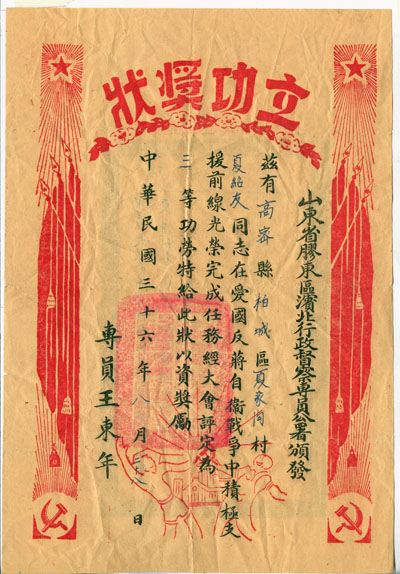 立功獎狀
山東省膠東區濱北行政督察專員公署頒發
茲有高密縣柏城區夏家溝村
夏紹友同志在愛國反蔣自衛戰爭中積極支
援前線光榮完成任務經大會評定為
三等功勞特給此狀以資獎勵
專員王東年
中華民國三十六年八月 日